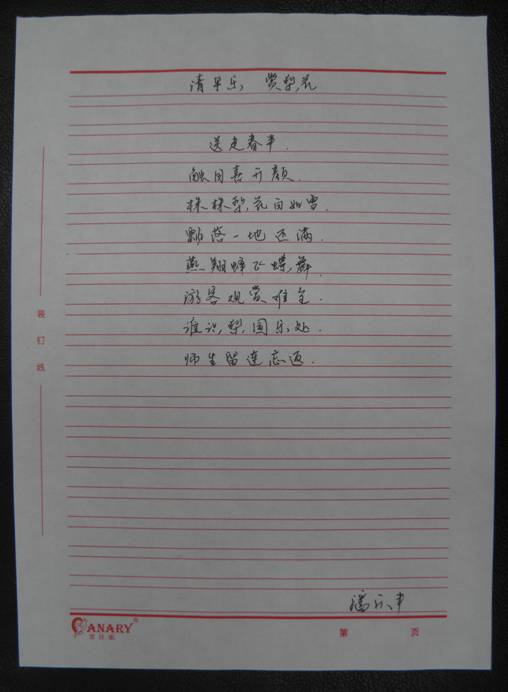 清平乐, 赏梨花
送走春半.
触目喜开颜.
株株梨花白如雪.
飘落一地还满.
燕翔蜂飞蝶舞.
游客观赏难全.
谁识梨园乐处.
师生留连忘返.
装
订
线
CANARY®
第 页